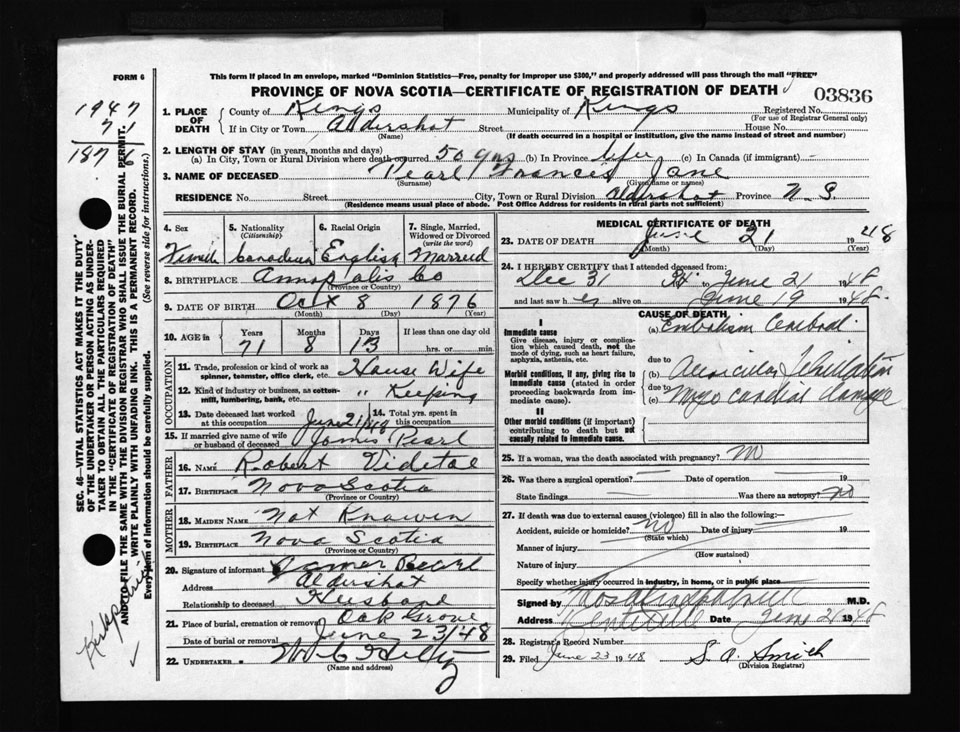 FORM 6
This form if placed in an envelope, marked "Dominion Statistics—Free, penalty for improper use $300," and properly addressed will pass through the mail "FREE"
PROVINCE OF NOVA SCOTIA—CERTIFICATE OF REGISTRATION OF DEATH
03836
1947
7 1
1876
1. PLACE OF DEATH County of Kings Municipality of Kings Registered No.
(For use of Registrar General only)
If in City or Town Aldershot Street House No.
(Name) (If death occurred in a hospital or institution, give the name instead of street and number)
2. LENGTH OF STAY (in years, months and days)
(a) In City, Town or Rural Division where death occurred 50 yrs (b) In Province life (c) In Canada (if immigrant)
3. NAME OF DECEASED Pearl Francis Jane
(Surname) (Given name or names)
RESIDENCE No. Street City, Town or Rural Division Aldershot Province N.S.
(Residence means usual place of abode. Post Office Address for residents in rural parts not sufficient)
4. Sex 5. Nationality (Citizenship) 6. Racial Origin 7. Single, Married, Widowed or Divorced (write the word)
Female Canadian English Married
8. BIRTHPLACE Annapolis Co
(Province or Country)
9. DATE OF BIRTH Oct 8 1876
(Month) (Day) (Year)
10. AGE in Years Months Days If less than one day old
71 8 13 hrs. or min.
OCCUPATION
11. Trade, profession or kind of work as spinner, teamster, office clerk, etc. House Wife
12. Kind of industry or business, as cotton-mill, lumbering, bank, etc. " Keeping
13. Date deceased last worked at this occupation June 21/48 14. Total yrs. spent in this occupation
15. If married give name of wife or husband of deceased James Pearl
FATHER
16. NAME Robert
17. BIRTHPLACE Nova Scotia
(Province or Country)
MOTHER
18. MAIDEN NAME Not Known
19. BIRTHPLACE Nova Scotia
(Province or Country)
20. Signature of informant James Pearl
Address Aldershot
Relationship to deceased Husband
21. Place of burial, cremation or removal Oak Grove
Date of burial or removal June 23/48
22. UNDERTAKER
(Name and address)
MEDICAL CERTIFICATE OF DEATH
23. DATE OF DEATH June 21 1948
(Month) (Day) (Year)
24. I HEREBY CERTIFY that I attended deceased from:
Dec 31 to June 21 1948
and last saw her alive on June 19 1948
CAUSE OF DEATH
I
Immediate cause
Give disease, injury or complication which caused death, not the mode of dying, such as heart failure, asphyxia, asthenia, etc.
(a) Embolism Cerebral
due to
Morbid conditions, if any, giving rise to immediate cause (stated in order proceeding backwards from immediate cause).
(b) Auricular Fibrillation
due to
(c) Myocardial damage
II
Other morbid conditions (if important) contributing to death but not causally related to immediate cause.
25. If a woman, was the death associated with pregnancy? No
26. Was there a surgical operation? Date of operation 19
State findings Was there an autopsy? No
27. If death was due to external causes (violence) fill in also the following:
Accident, suicide or homicide? No Date of injury 19
(State which)
Manner of injury
(How sustained)
Nature of injury
Specify whether injury occurred in industry, in home, or in public place
Signed by M.D.
Address Kentville Date June 21 1948
28. Registrar's Record Number
29. Filed June 23 1948 S. A. Smith
(Division Registrar)
SEC. 46—VITAL STATISTICS ACT MAKES IT THE DUTY OF THE UNDERTAKER OR PERSON ACTING AS UNDERTAKER TO OBTAIN ALL THE PARTICULARS REQUIRED IN THE "CERTIFICATE OF REGISTRATION OF DEATH" AND TO FILE THE SAME WITH THE DIVISION REGISTRAR WHO SHALL ISSUE THE BURIAL PERMIT.
WRITE PLAINLY WITH UNFADING INK. THIS IS A PERMANENT RECORD.
Every item of information should be carefully supplied. (See reverse side for instructions.)